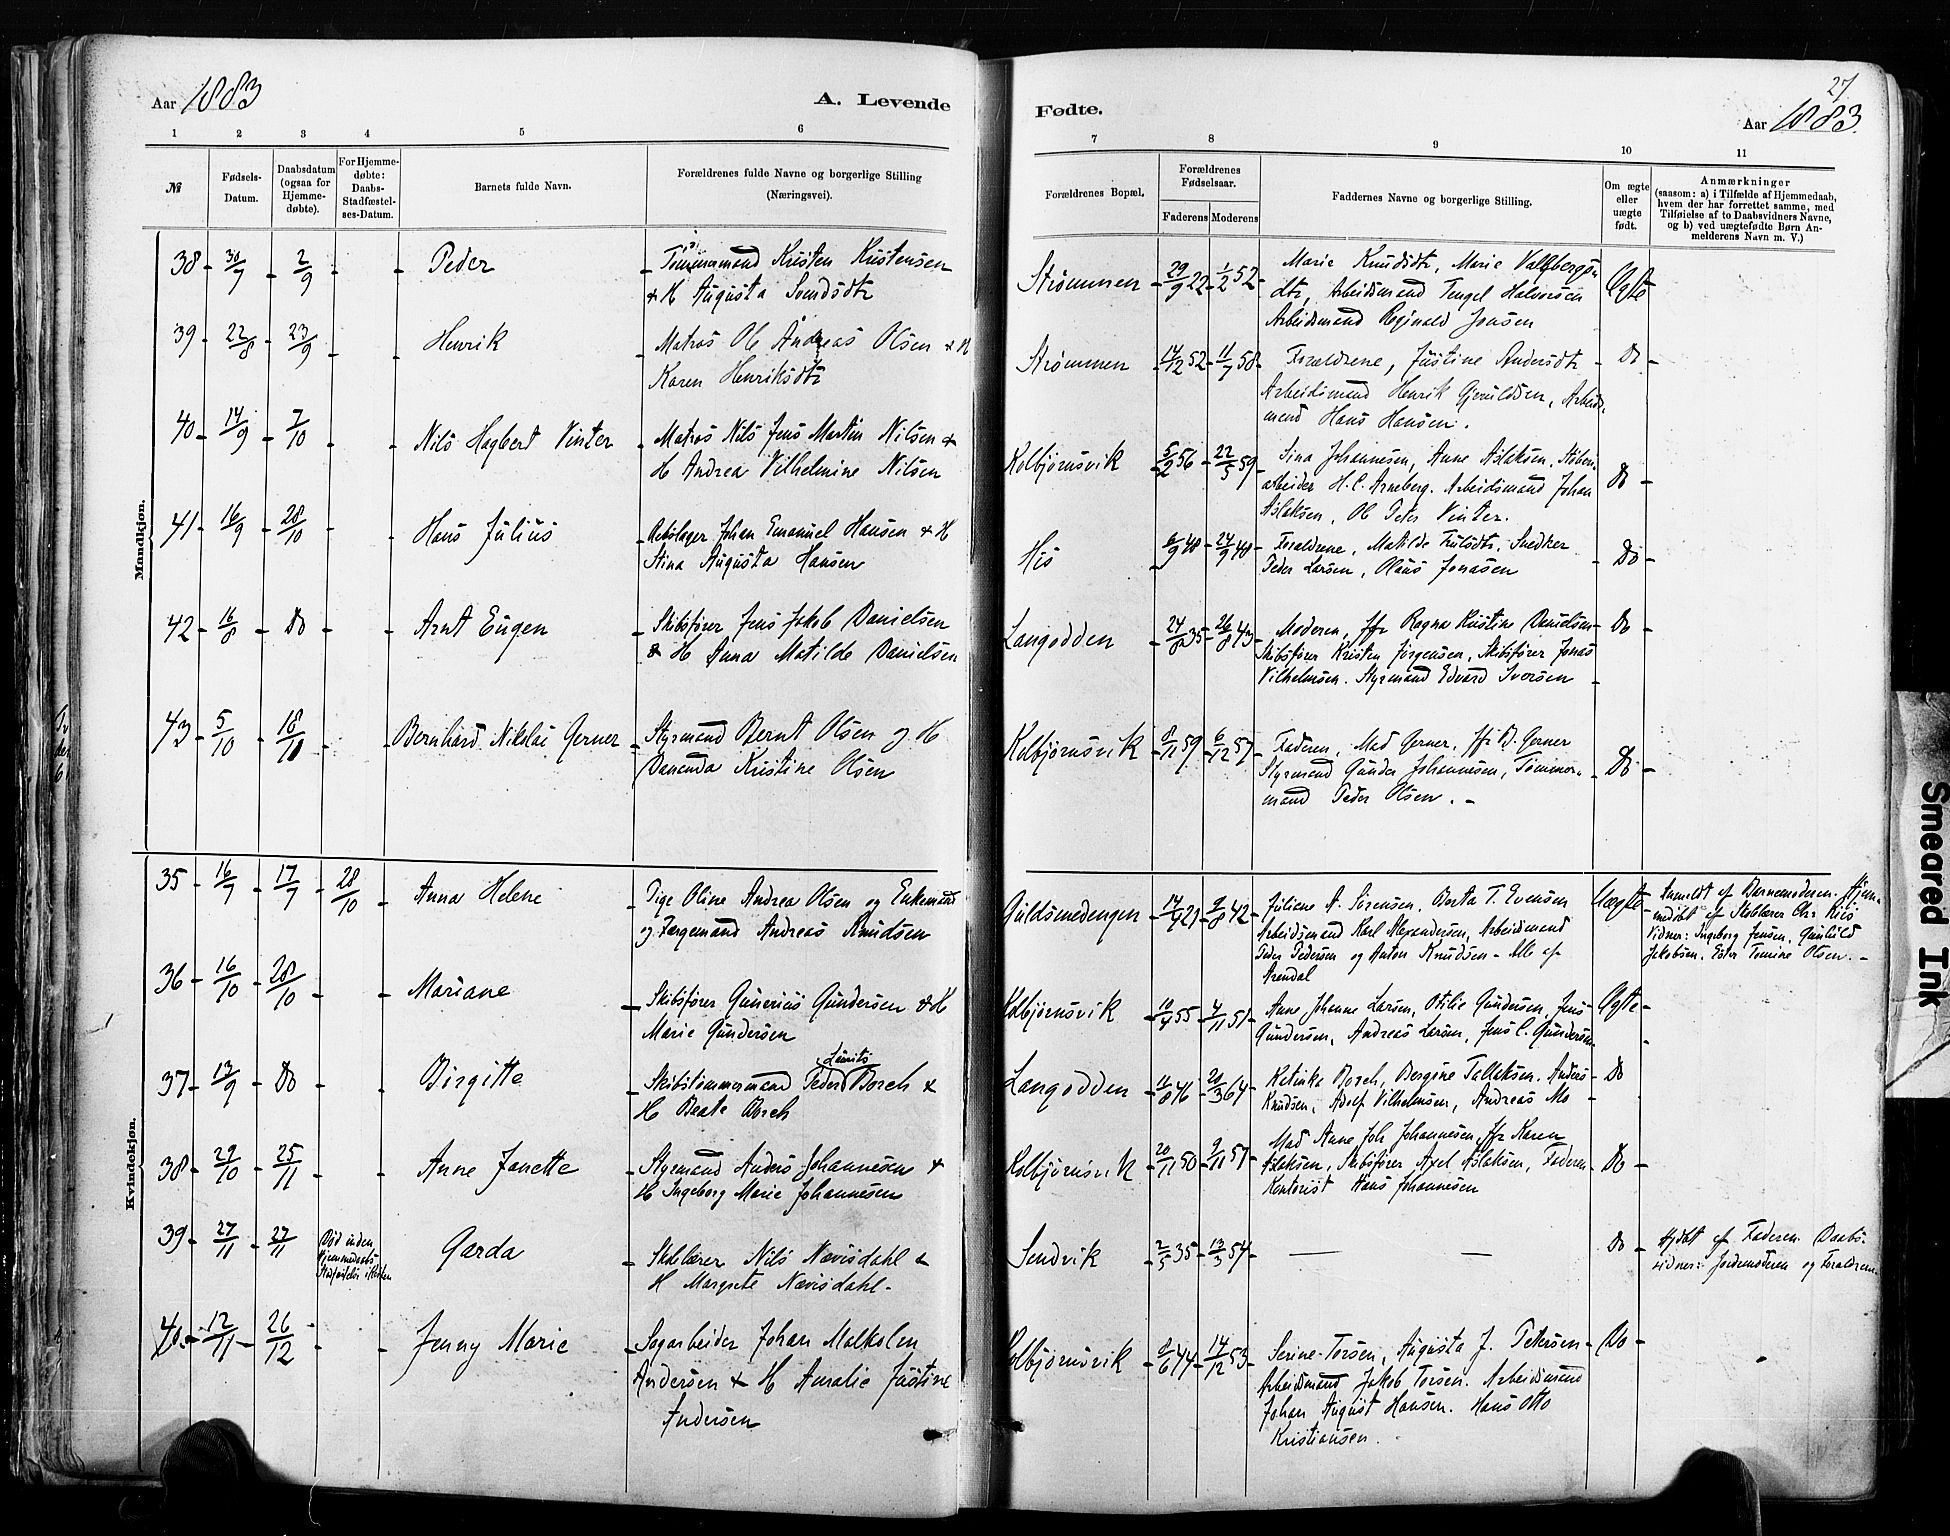 Aar 1883
A. Levende
1 2 3 4 5 6
Mandkjøn.
№
Fødsels-
Datum.
Daabsdatum
(ogsaa for
Hjemme-
døbte).
For Hjemme-
døbte:
Daabs-
Stadfæstel-
ses-Datum.
Barnets fulde Navn.
Forældrenes fulde Navne og borgerlige Stilling
(Næringsvei).
38 30/7 2/9 Peder
Tømmermand Kristen Kristensen
& H Augusta Svendsdtr
39 22/8 23/9 Henrik
Matros Ole Andreas Olsen & H
Karen Henriksdtr
40 14/9 7/10 Nils Hagbert Vinter
Matros Nils Jens Martin Nilsen &
H Andrea Vilhelmine Nilsen
41 16/9 28/10 Hans Julius
Johan Emanuel Hansen & H
Stina Augusta Hansen
42 16/8 Do Arnt Eugen
Skibsfører Jens Jakob Danielsen
& H Anna Matilde Danielsen
43 5/10 18/11 Bernhard Nikolai Gerner
Styrmand Bernt Olsen og H
Kristine Olsen
Kvindekjøn.
35 16/7 17/9 28/10 Anna Helene
Pige Oline Andrea Olsen og Enkemand
og Færgemand Andreas Knudsen
36 16/10 28/10 Mariane
Skibsfører Gunerius Gundersen & H
Marie Gundersen
37 13/9 Do Birgitte
Skibstømmermand Peder Lauritz Borch &
H Beate Borch
38 29/10 25/11 Anne Janette
Styrmand Anders Johannesen &
H Ingeborg Marie Johannesen
39 27/11 27/11 Død inden
Hjemmedaabs
Garda
Skolelærer Nils Nævisdahl &
H Margrete Nævisdahl -
40 12/11 26/12 Jenny Marie
Sagarbeider Johan Malkolm
Andersen & H Amalie Justine
Andersen
Fødte.
27.
Aar 1883.
7 8 9 10 11
Forældrenes Bopæl.
Forældrenes
Fødselsaar.
Faderens Moderens
Faddernes Navne og borgerlige Stilling.
Om ægte
eller
uægte
født.
Anmærkninger
(saasom: a) i Tilfælde af Hjemmedaab,
hvem der har forrettet samme, med
Tilføielse af to Daabsvidners Navne,
og b) ved uægtefødte Børn An-
melderens Navn m. V.)
Strømmen 29/9 22 1/2 52
Marie Knudsdtr, Marie Vallbergs-
dtr, Arbeidsmand Tengel Halvorsen
Arbeidsmand Reginald Jensen
Ægte
Strømmen 14/12 52 11/7 58
Forældrene, Justine Andersdtr
Arbeidsmand Henrik Gjeruldsen, Arbeids-
mand Hans Hansen.
Do
Kolbjørnsvik 5/2 56 22/5 59
Sina Johannesen, Anne Aslaksen, Støberi
arbeider H. C. Arneberg. Arbeidsmand Johan
Aslaksen, Ole Peter Vinter.
Do
His 6/9 48 24/9 48
Forældrene, Matilde Trulsdtr, Snedker
Peder Larsen, Olaus Jonassen
Do
Langodden 24/8 35 26/8 43
Moderen, Jfr Ragna Kristine Danielsen
Skibsfører Kristen Jørgensen, Skibsfører Jonas
Vilhelmsen. Styrmand Edvard Iversen
Do
Kolbjørnsvik 8/11 59 6/12 57
Faderen, Mad Gerner, Jfr B. Gerner
Styrmand Gunder Johannesen, Tømmer-
mand Peder Olsen. -
Do
Guldsmedengen 14/9 21 9/8 42
Juliane A. Sørensen, Berta T. Evensen
Arbeidsmand Karl Alexandersen, Arbeidsmand
Peder Pedersen og Anton Knudsen - Alle af
Arendal
Uægte
Anmeldt af Barnemoderen. Hjem-
medøbt af Skolelærer Chr Riis
Vidner: Ingeborg Jensen, Gunhild
Jakobsen, Ester Tomine Olsen. -
Kolbjørnsvik 10/4 55 4/11 51
Anne Johanne Larsen, Otilie Gundersen, Jens
Gundersen, Andreas Larsen, Jens C. Gundersen
Ægte
Langodden 11/8 46 20/3 64
Katinka Borch, Bergine Tallaksen. Anders
Knudsen, Adolf Vilhelmsen, Andreas Mo
Do
Kolbjørnsvik 20/11 50 9/11 57
Mad Anne Joh Johannesen, Jfr Karen
Aslaksen, Skibsfører Axel Aslaksen, Faderen
Kontorist Hans Johannesen
Do
Sandvik 2/5 35 13/3 54
Do
Hjdøbt af Faderen. Daabs-
vidner: Jordemoderen og Forældrene
Kolbjørnsvik 9/6 44 14/12 53
Serine Torsen, Augusta J. Petersen
Arbeidsmand Jakob Torsen. Arbeidsmand
Johan August Hansen. Hans Otto
Kristiansen.
Do
Smeared Ink